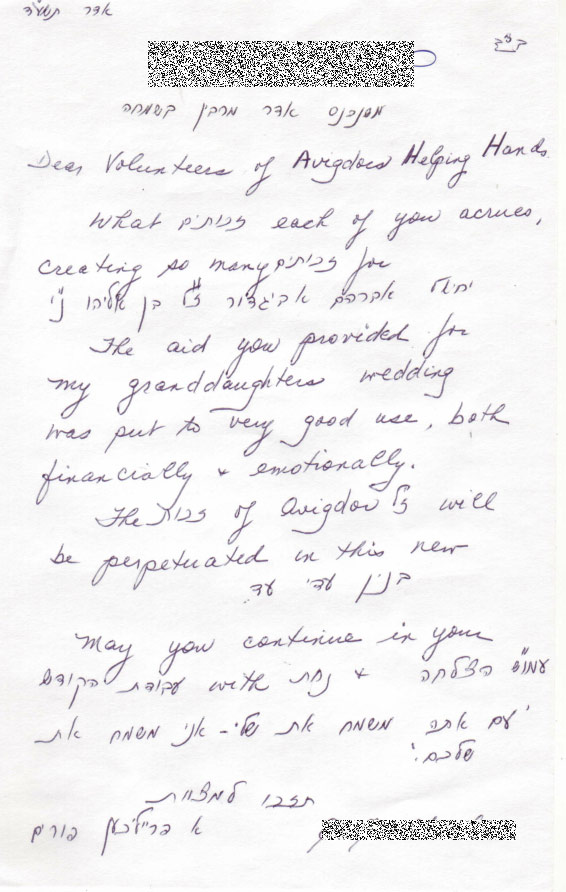 אדר תשע"ד
ב"ה
משנכנס אדר מרבין בשמחה
Dear Volunteers of Avigdors Helping Hands
What זכותים each of you accrues,
creating so many זכותים for
יחיאל אברהם אביגדור ז"ל בן אליהו ני"
The aid you provided for
my granddaughters wedding
was put to very good use, both
financially & emotionally.
The זכות of Avigdor ז"ל will
be perpetuated in this new
בנין עדי עד
May you continue in your
עבודת הקודש with נחת & הצלחה עמו"ש
'עם אתה משמח את שלי - אני משמח את
שלכם.'
תזכו למצוות
א פרייליכען פורים